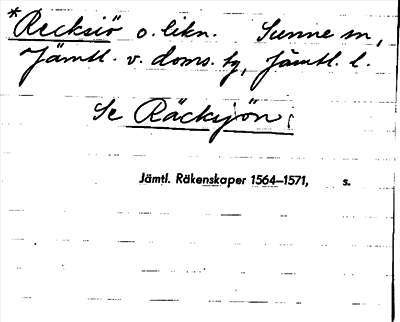 *Recksiö o. likn. Sunne sn,
Jämtl. v. doms. tg, Jämtl. l.
Se Räcksjön.
Jämtl. Räkenskaper 1564–1571, s.